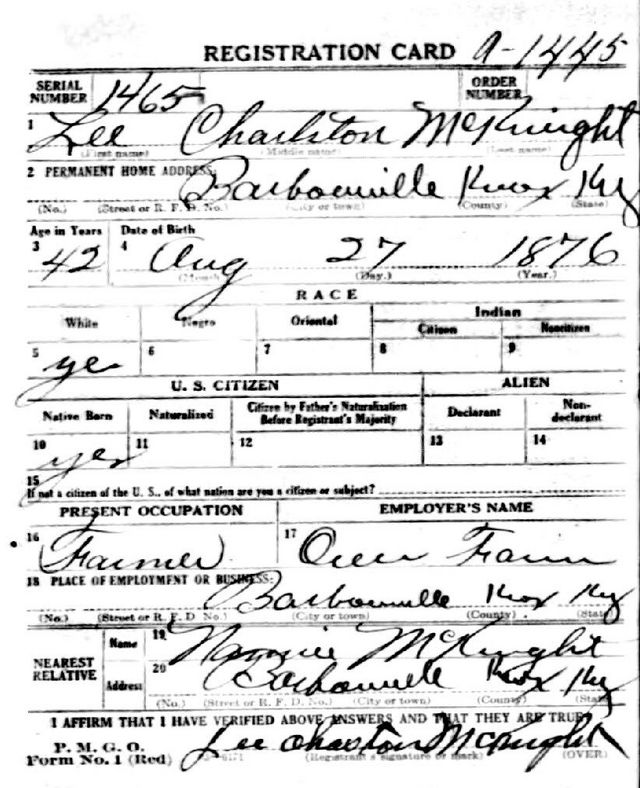 REGISTRATION CARD A-1445
SERIAL NUMBER 1465 ORDER NUMBER
1 Lee Charlston McKnight
(First name) (Middle name) (Last name)
2 PERMANENT HOME ADDRESS:
Barbourville Knox Ky
(No.) (Street or R. F. D. No.) (City or town) (County) (State)
Age in Years Date of Birth
3 42 4 Aug 27 1876
(Month.) (Day.) (Year.)
RACE
White Negro Oriental Indian
Citizen Noncitizen
5 yes 6 7 8 9
U. S. CITIZEN ALIEN
Native Born Naturalized Citizen by Father's Naturalization Before Registrant's Majority Declarant Non-declarant
10 yes 11 12 13 14
15
If not a citizen of the U. S., of what nation are you a citizen or subject?
PRESENT OCCUPATION EMPLOYER'S NAME
16 Farmer 17 Own Farm
18 PLACE OF EMPLOYMENT OR BUSINESS:
Barbourville Knox Ky
(No.) (Street or R. F. D. No.) (City or town) (County) (State)
NEAREST RELATIVE
Name 19 Nannie McKnight
Address 20 Barbourville Knox Ky
(No.) (Street or R. F. D. No.) (City or town) (County) (State)
I AFFIRM THAT I HAVE VERIFIED ABOVE ANSWERS AND THAT THEY ARE TRUE
P. M. G. O.
Form No. 1 (Red) Lee Charlston McKnight
(Registrant's signature or mark) (OVER)